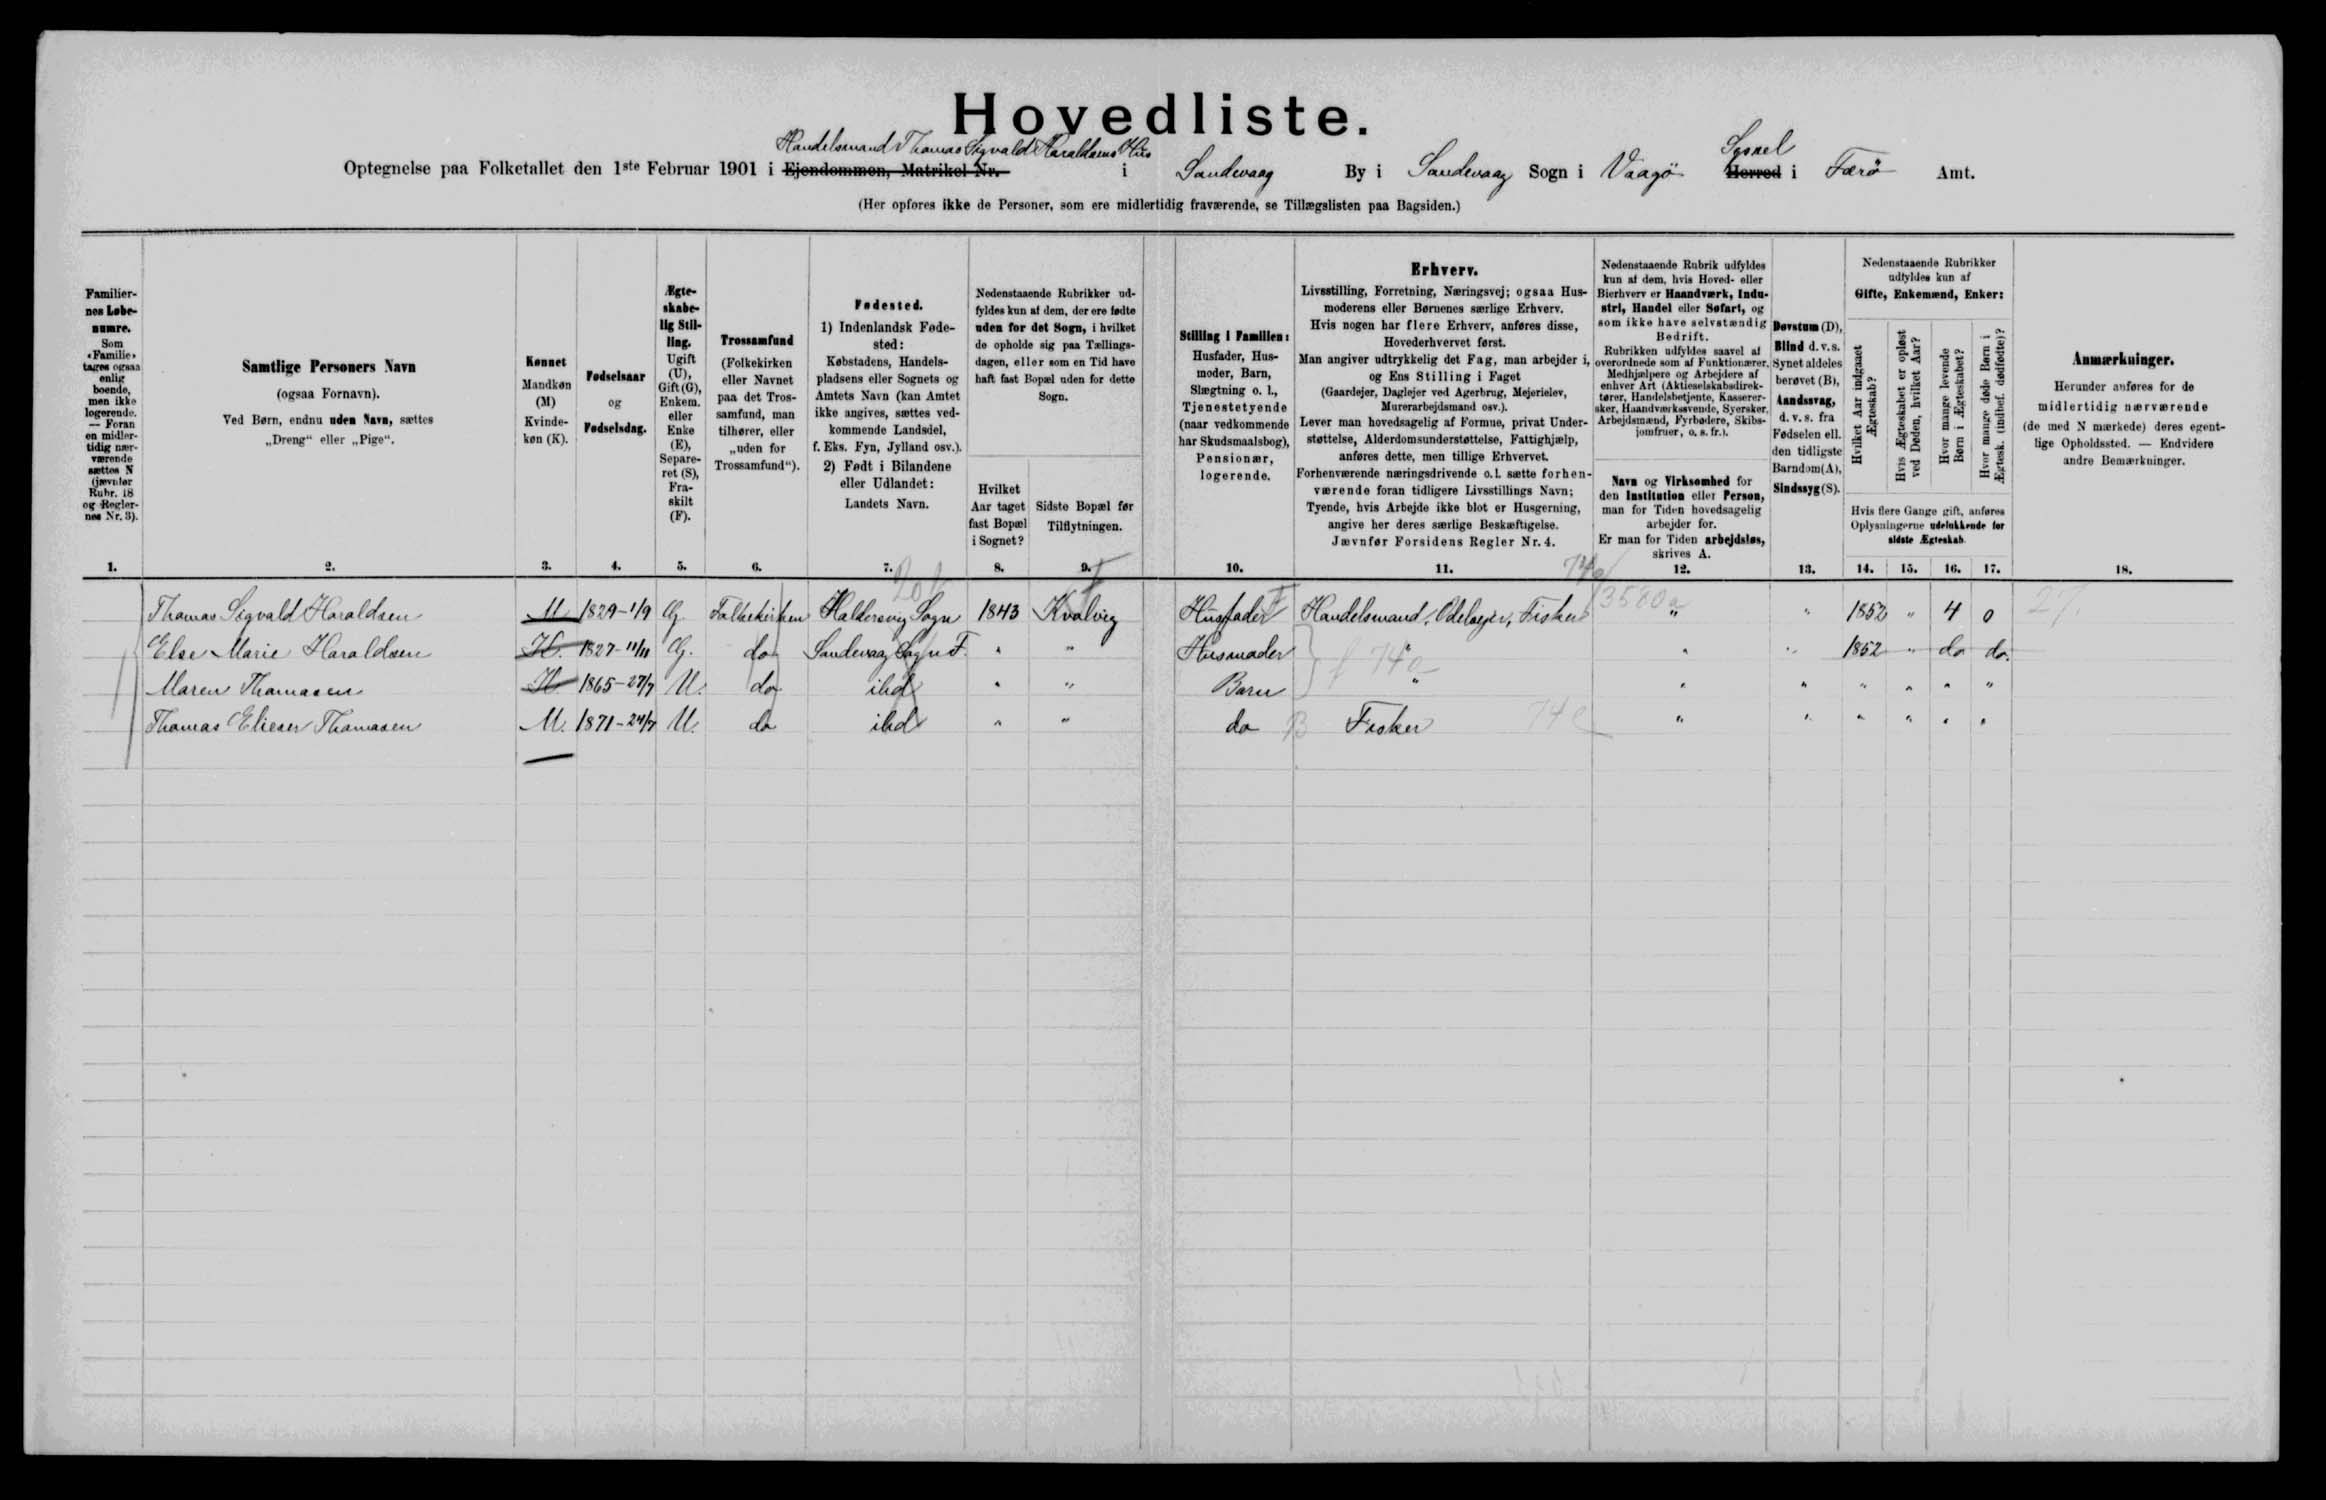 Hovedliste.
Handelsmand Thomas Sigvald Haraldsens Hus
Sysael
Optegnelse paa Folketallet den 1ste Februar 1901 i Ejendommen, Matrikel Nr. i Sandevaag By i Sandevaag Sogn i Vaagø Herred i Færø Amt.
(Her opføres ikke de Personer, som ere midlertidig fraværende, se Tillægslisten paa Bagsiden.)
Familiernes Løbenumre.
Som «Familie» tages ogsaa enlig boende, men ikke logerende. — Foran en midlertidig nærværende sættes N (jævnfør Rubr. 18 og Reglernes Nr. 3).
Samtlige Personers Navn
(ogsaa Fornavn).
Ved Børn, endnu uden Navn, sættes
„Dreng“ eller „Pige“.
Kønnet
Mandkøn
(M)
Kvinde-
køn (K).
Fødselsaar
og
Fødselsdag.
Ægte-
skabe-
lig Stil-
ling.
Ugift
(U),
Gift (G),
Enkem.
eller
Enke
(E),
Separe-
ret (S),
Fra-
skilt
(F).
Trossamfund
(Folkekirken
eller Navnet
paa det Tros-
samfund, man
tilhører, eller
„uden for
Trossamfund“).
Fødested.
1) Indenlandsk Føde-
sted:
Købstadens, Handels-
pladsens eller Sognets og
Amtets Navn (kan Amtet
ikke angives, sættes ved-
kommende Landsdel,
f. Eks. Fyn, Jylland osv.).
2) Født i Bilandene
eller Udlandet:
Landets Navn.
Nedenstaaende Rubrikker ud-
fyldes kun af dem, der ere fødte
uden for det Sogn, i hvilket
de opholde sig paa Tællings-
dagen, eller som en Tid have
haft fast Bopæl uden for dette
Sogn.
Hvilket
Aar taget
fast Bopæl
i Sognet?
Sidste Bopæl før
Tilflytningen.
Stilling i Familien:
Husfader, Hus-
moder, Barn,
Slægtning o. l.,
Tjenestetyende
(naar vedkommende
har Skudsmaalsbog),
Pensionær,
logerende.
Erhverv.
Livsstilling, Forretning, Næringsvej; ogsaa Hus-
moderens eller Børnenes særlige Erhverv.
Hvis nogen har flere Erhverv, anføres disse,
Hovederhvervet først.
Man angiver udtrykkelig det Fag, man arbejder i,
og Ens Stilling i Faget
(Gaardejer, Daglejer ved Agerbrug, Mejerielev,
Murerarbejdsmand osv.).
Lever man hovedsagelig af Formue, privat Under-
støttelse, Alderdomsunderstøttelse, Fattighjælp,
anføres dette, men tillige Erhvervet.
Forhenværende næringsdrivende o. l. sætte forhen-
værende foran tidligere Livsstillings Navn;
Tyende, hvis Arbejde ikke blot er Husgerning,
angive her deres særlige Beskæftigelse.
Jævnfør Forsidens Regler Nr. 4.
Nedenstaaende Rubrik udfyldes
kun af dem, hvis Hoved- eller
Bierhverv er Haandværk, Indu-
stri, Handel eller Søfart, og
som ikke have selvstændig
Bedrift.
Rubrikken udfyldes saavel af
overordnede som af Funktionærer,
Medhjælpere og Arbejdere af
enhver Art (Aktieselskabsdirek-
tører, Handelsbetjente, Kasserer-
sker, Haandværkssvende, Syersker,
Arbejdsmænd, Fyrbødere, Skibs-
jomfruer, o. s. fr.).
Navn og Virksomhed for
den Institution eller Person,
man for Tiden hovedsagelig
arbejder for.
Er man for Tiden arbejdsløs,
skrives A.
Døvstum (D),
Blind d. v. s.
Synet aldeles
berøvet (B),
Aandssvag,
d. v. s. fra
Fødselen ell.
den tidligste
Barndom (A),
Sindssyg (S).
Nedenstaaende Rubrikker
udfyldes kun af
Gifte, Enkemænd, Enker:
Hvilket Aar indgaaet
Ægteskab?
Hvis Ægteskabet er opløst
ved Døden, hvilket Aar?
Hvor mange levende
Børn i Ægteskabet?
Hvor mange døde Børn i
Ægtesk. (indbef. dødfødte)?
Hvis flere Gange gift, anføres
Oplysningerne udelukkende for
sidste Ægteskab.
Anmærkninger.
Herunder anføres for de
midlertidig nærværende
(de med N mærkede) deres egent-
lige Opholdssted. — Endvidere
andre Bemærkninger.
1. 2. 3. 4. 5. 6. 7. 8. 9. 10. 11. 12. 13. 14. 15. 16. 17. 18.
Thomas Sigvald Haraldsen M 1829-1/9 G Folkekirken Haldersvig Sogn 1843 Kvalvig Husfader Handelsmand, Odelsejer, Fisker 3580a " " 1852 " 4 0 27.
Else Marie Haraldsen K. 1827-11/11 G. do Sandevaag Sogn F. " " Husmoder " " " 1852 " do do.
Maren Thomasen K 1865-27/7 U. do ibd " " Barn " " " " " " "
Thomas Elieser Thomasen M. 1871-24/7 U. do ibd " " do B Fisker 74c " " " " " "